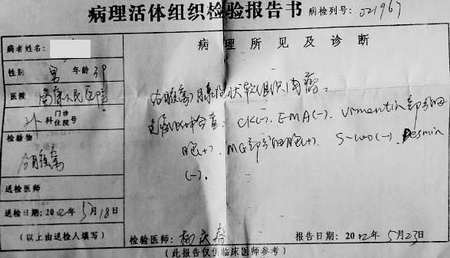 病理活体组织检验报告书 病检列号：021967
病者姓名：
性别 男 年龄 39
医院 人民医院
外 科 门诊住院号
检验物
右腹窝
送检医师
送检日期：2002年5月18日
（以上由送检人填写）
病理所见及诊断
右腹窝 腺泡状软组织肉瘤
CK(-). EMA(-). Vimentin部分细
胞(+). MG部分细胞(+). S-100(-). Desmin
(-).
检验医师：
报告日期：2002年5月23日
（此报告仅供临床医师参考）